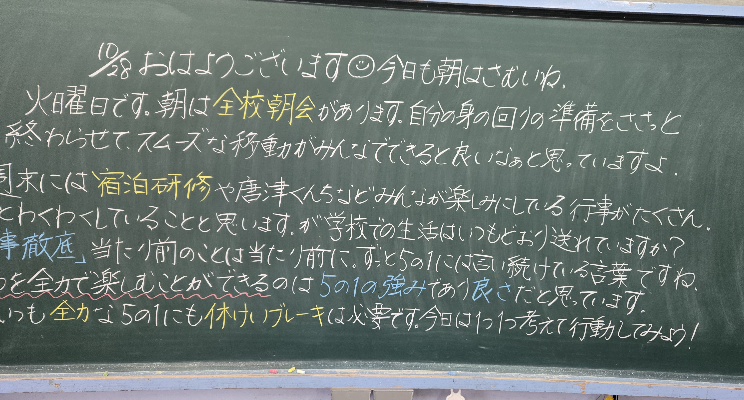 10/28 おはようございます☺今日も朝はさむいね.
火曜日です。朝は全校朝会があります。自分の身の回りの準備をささっと
終わらせて、スムーズな移動がみんなでできると良いなぁと思っていますよ.
週末には宿泊研修や唐津くんちなどみんなが楽しみにしている行事がたくさん.
とわくわくしていることと思います。が学校での生活はいつもどおり送れていますか?
事徹底」当たり前のことは当たり前に。ずっと5の1には言い続けている言葉ですね.
つを全力で楽しむことができるのは5の1の強みであり良さだと思っています.
いつも全力な5の1にも休けいブレーキは必要です。今日は1つ1つ考えて行動してみよう!